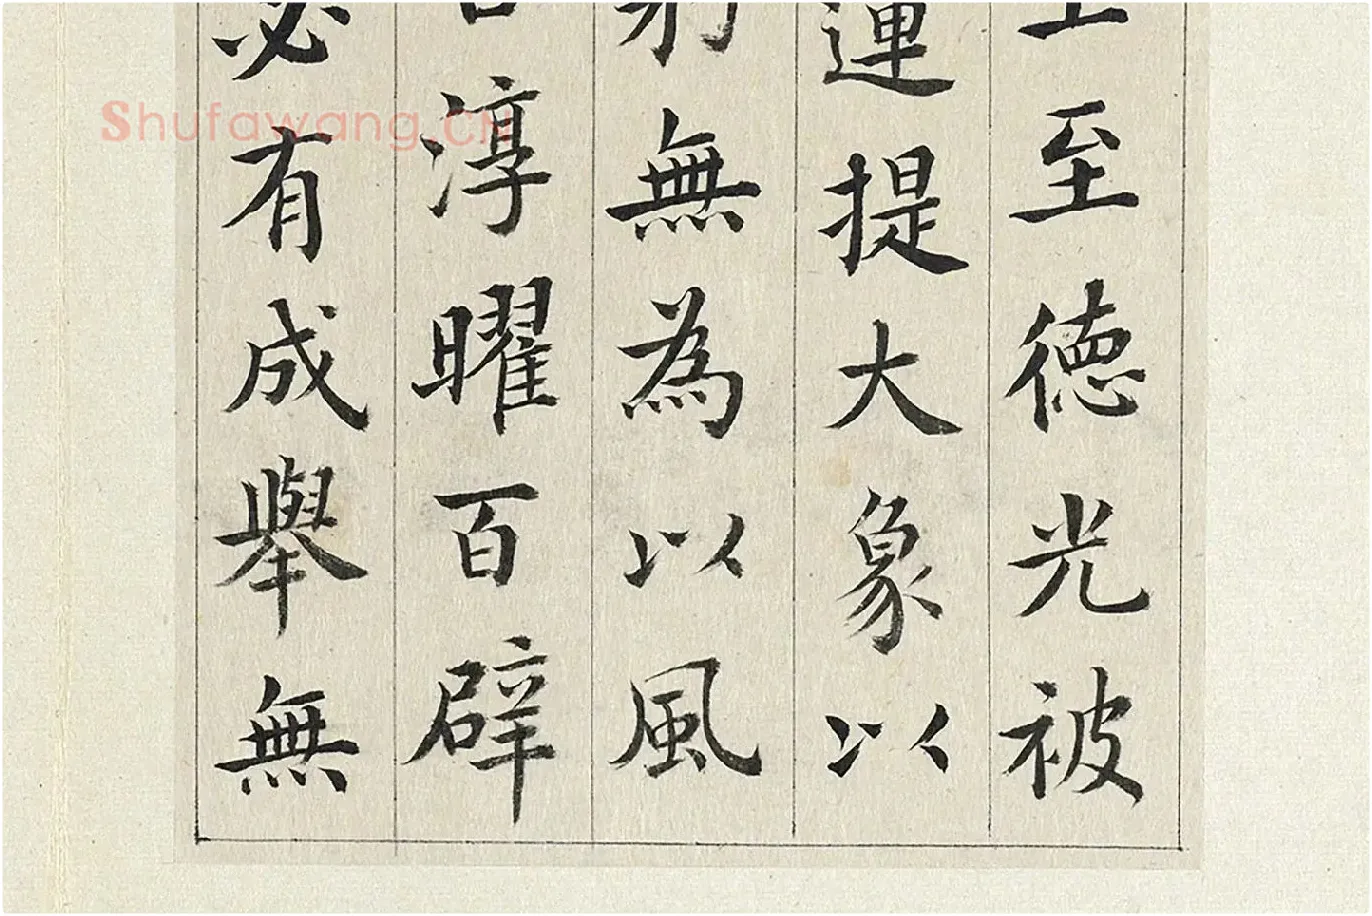 至德光被
運提大象以
無為以風
淳曜百辟
必有成舉無
Shufawang.CN